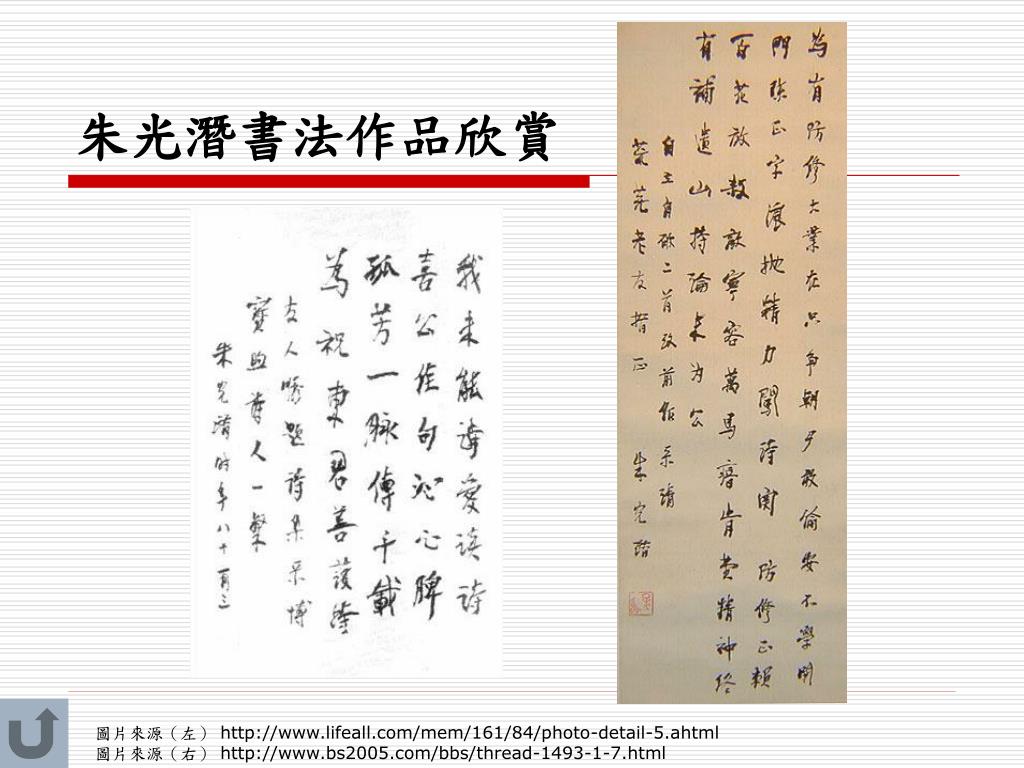 朱光潛書法作品欣賞
我未能詩愛談詩
喜公佳句沁心脾
孤芳一脉傳千載
為祝東君善護
友人 題詩集呈博
寶 尊人一粲
朱光潛時年八十有三
為有防修大業在只爭朝夕敢偷安不學開
門陳正字浪拋精力閉詩關 防修正賴
百花放教敵寧容萬馬瘖肯費精神終
有補遺山持論未為公
自王有 二首致前作呈請
荒蕪老友指正 朱光潛
圖片來源（左） http://www.lifeall.com/mem/161/84/photo-detail-5.ahtml
圖片來源（右） http://www.bs2005.com/bbs/thread-1493-1-7.html